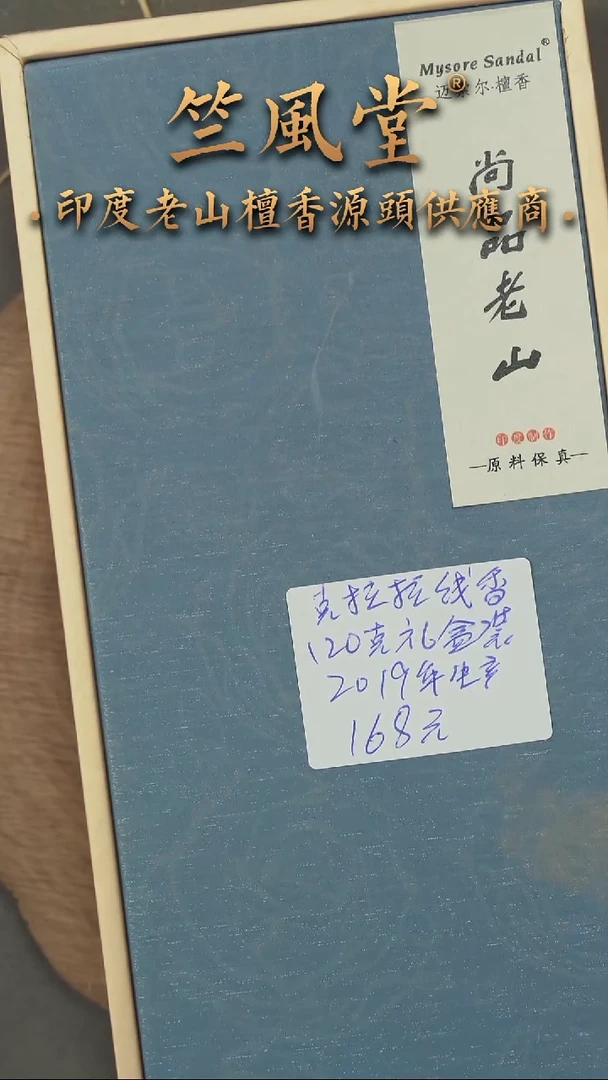 竺風堂®
·印度老山檀香源頭供應商·
Mysore Sandal®
迈索尔·檀香
尚品老山
印度制作
—原料保真—
克拉拉线香
120克礼盒装
2019年生产
168元